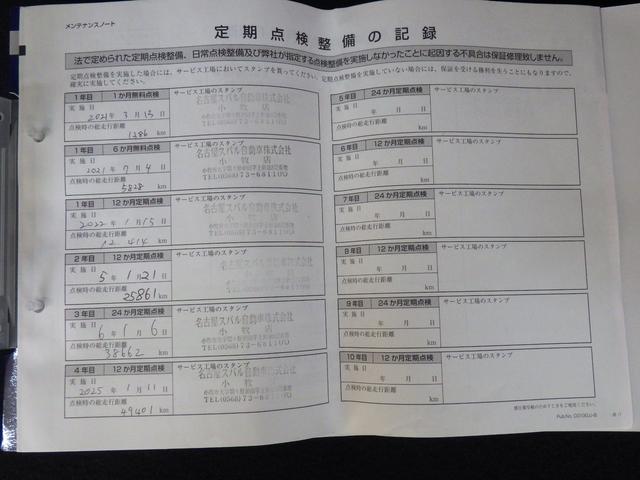 メンテナンスノート
定期点検整備の記録
法で定められた定期点検整備、日常点検整備及び弊社が指定する点検整備を実施しなかったことに起因する不具合は保証修理致しません。
定期点検整備を実施した場合には、サービス工場においてスタンプを貰ってください。定期点検整備を実施していない場合には、保証を受ける権利を失うことにもなりますので、
確実に実施してください。
1年目 1か月無料点検 サービス工場のスタンプ
実施日
2021年 3月13日
名古屋スバル自動車株式会社
小牧店
点検時の総走行距離
1286 km
1年目 6か月無料点検 サービス工場のスタンプ
実施日
2021年 7月4日
名古屋スバル自動車株式会社
小牧店
TEL(0568)73-6811(代)
点検時の総走行距離
5828 km
1年目 12か月定期点検 サービス工場のスタンプ
実施日
2022年 1月15日
名古屋スバル自動車株式会社
小牧店
TEL(0568)73-6811(代)
点検時の総走行距離
12,414 km
2年目 12か月定期点検 サービス工場のスタンプ
実施日
5年 1月21日
名古屋スバル自動車株式会社
小牧店
点検時の総走行距離
25861 km
3年目 24か月定期点検 サービス工場のスタンプ
実施日
6年 1月6日
名古屋スバル自動車株式会社
小牧店
TEL(0568)73-6811(代)
点検時の総走行距離
38662 km
4年目 12か月定期点検 サービス工場のスタンプ
実施日
2025年 1月11日
名古屋スバル自動車株式会社
小牧店
TEL(0568)73-6811(代)
点検時の総走行距離
49401 km
5年目 24か月定期点検 サービス工場のスタンプ
実施日
年 月 日
点検時の総走行距離
km
6年目 12か月定期点検 サービス工場のスタンプ
実施日
年 月 日
点検時の総走行距離
km
7年目 24か月定期点検 サービス工場のスタンプ
実施日
年 月 日
点検時の総走行距離
km
8年目 12か月定期点検 サービス工場のスタンプ
実施日
年 月 日
点検時の総走行距離
km
9年目 24か月定期点検 サービス工場のスタンプ
実施日
年 月 日
点検時の総走行距離
km
10年目 12か月定期点検 サービス工場のスタンプ
実施日
年 月 日
点検時の総走行距離
km